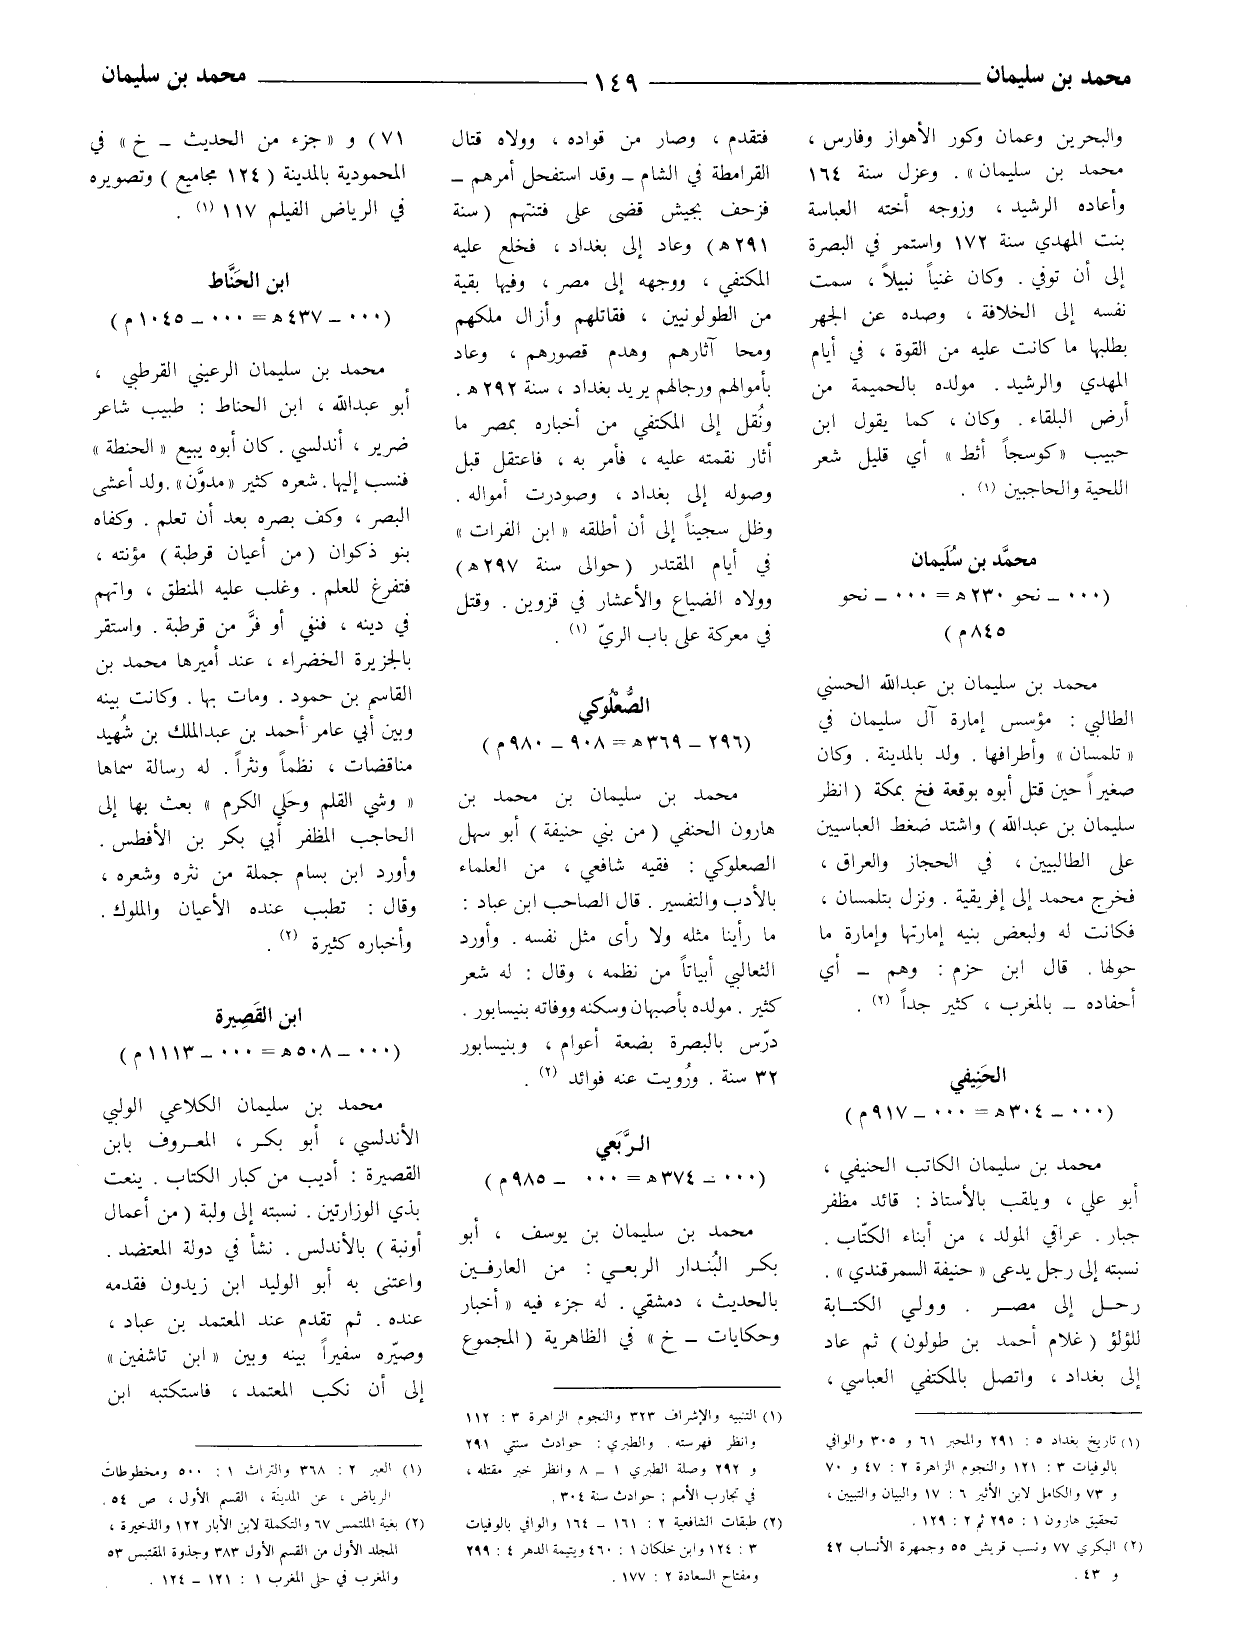 محمد بن سليمان
١٤٩
محمد بن سليمان
والبحرين وعمان وكور الأهواز وفارس ،
محمد بن سليمان» . وعزل سنة ١٦٤
وأعاده الرشيد ، وزوجه أخته العباسة
بنت المهدي سنة ١٧٢ واستمر في البصرة
إلى أن توفي . وكان غنياً نبيلاً ، سمت
نفسه إلى الخلافة ، وصده عن الجهر
بطلبها ما كانت عليه من القوة ، في أيام
المهدي والرشيد . مولده بالحميمة من
أرض البلقاء . وكان ، كما يقول ابن
حبيب «كوسجاً أثط» أي قليل شعر
اللحية والحاجبين (١) .
محمَّد بن سُلَيمان
(٠٠٠ ـ نحو ٢٣٠ هـ = ٠٠٠ ـ نحو
٨٤٥ م)
محمد بن سليمان بن عبدالله الحسني
الطالبي : مؤسس إمارة آل سليمان في
« تلمسان » وأطرافها . ولد بالمدينة . وكان
صغيراً حين قتل أبوه بوقعة فخ بمكة ( انظر
سليمان بن عبدالله ) واشتد ضغط العباسيين
على الطالبيين ، في الحجاز والعراق ،
فخرج محمد إلى إفريقية . ونزل بتلمسان ،
فكانت له ولبعض بنيه إمارتها وإمارة ما
حولها . قال ابن حزم : وهم ـ أي
أحفاده ـ بالمغرب ، كثير جداً (٢) .
الحَنِيفي
(٠٠٠ ـ ٣٠٤ هـ = ٠٠٠ ـ ٩١٧ م)
محمد بن سليمان الكاتب الحنيفي ،
أبو علي ، ويلقب بالأستاذ : قائد مظفر
جبار . عراقي المولد ، من أبناء الكتّاب .
نسبته إلى رجل يدعى « حنيفة السمرقندي » .
رحل إلى مصر . وولي الكتابة
للؤلؤ ( غلام أحمد بن طولون ) ثم عاد
إلى بغداد ، واتصل بالمكتفي العباسي ،
(١) تاريخ بغداد ٥ : ٢٩١ والمحبر ٦١ و ٣٠٥ والوافي
بالوفيات ٣ : ١٢١ والنجوم الزاهرة ٢ : ٤٧ و ٧٠
و ٧٣ والكامل لابن الأثير ٦ : ١٧ والبيان والتبيين ،
تحقيق هارون ١ : ٢٩٥ ثم ٢ : ١٢٩ .
(٢) البكري ٧٧ ونسب قريش ٥٥ وجمهرة الأنساب ٤٢
و ٤٣ .
فتقدم ، وصار من قواده ، وولاه قتال
القرامطة في الشام ـ وقد استفحل أمرهم ـ
فزحف بجيش قضى على فتنتهم (سنة
٢٩١ هـ) وعاد إلى بغداد ، فخلع عليه
المكتفي ، ووجهه إلى مصر ، وفيها بقية
من الطولونيين ، فقاتلهم وأزال ملكهم
ومحا آثارهم وهدم قصورهم ، وعاد
بأموالهم ورجالهم يريد بغداد ، سنة ٢٩٢ هـ .
ونُقل إلى المكتفي من أخباره بمصر ما
أثار نقمته عليه ، فأمر به ، فاعتقل قبل
وصوله إلى بغداد ، وصودرت أمواله .
وظل سجيناً إلى أن أطلقه « ابن الفرات »
في أيام المقتدر (حوالى سنة ٢٩٧ هـ)
وولاه الضياع والأعشار في قزوين . وقتل
في معركة على باب الريّ (١) .
الصُّعْلُوكي
(٢٩٦ ـ ٣٦٩ هـ = ٩٠٨ ـ ٩٨٠ م)
محمد بن سليمان بن محمد بن
هارون الحنفي (من بني حنيفة) أبو سهل
الصعلوكي : فقيه شافعي ، من العلماء
بالأدب والتفسير . قال الصاحب ابن عباد :
ما رأينا مثله ولا رأى مثل نفسه . وأورد
الثعالبي أبياتاً من نظمه ، وقال : له شعر
كثير . مولده بأصبهان وسكنه ووفاته بنيسابور .
درّس بالبصرة بضعة أعوام ، وبنيسابور
٣٢ سنة . ورُويت عنه فوائد (٢) .
الرَّبَعي
(٠٠٠ ـ ٣٧٤ هـ = ٠٠٠ ـ ٩٨٥ م)
محمد بن سليمان بن يوسف ، أبو
بكر البُندار الربعي : من العارفين
بالحديث ، دمشقي . له جزء فيه « أخبار
وحكايات ـ خ » في الظاهرية ( المجموع
(١) التنبيه والإشراف ٣٢٣ والنجوم الزاهرة ٣ : ١١٢
وانظر فهرسته . والطبري : حوادث سنتي ٢٩١
و ٢٩٢ وصلة الطبري ١ ـ ٨ وانظر خبر مقتله ،
في تجارب الأمم : حوادث سنة ٣٠٤ .
(٢) طبقات الشافعية ٢ : ١٦١ ـ ١٦٤ والوافي بالوفيات
٣ : ١٢٤ وابن خلكان ١ : ٤٦٠ ويتيمة الدهر ٤ : ٢٩٩
ومفتاح السعادة ٢ : ١٧٧ .
٧١) و « جزء من الحديث ـ خ » في
المحمودية بالمدينة ( ١٢٤ مجاميع ) وتصويره
في الرياض الفيلم ١١٧ (١) .
ابن الحَنَّاط
(٠٠٠ ـ ٤٣٧ هـ = ٠٠٠ ـ ١٠٤٥ م)
محمد بن سليمان الرعيني القرطبي ،
أبو عبدالله ، ابن الحناط : طبيب شاعر
ضرير ، أندلسي . كان أبوه يبيع « الحنطة »
فنسب إليها . شعره كثير «مدوَّن» . ولد أعشى
البصر ، وكف بصره بعد أن تعلم . وكفاه
بنو ذكوان (من أعيان قرطبة) مؤنته ،
فتفرغ للعلم . وغلب عليه المنطق ، واتهم
في دينه ، فنفي أو فرَّ من قرطبة . واستقر
بالجزيرة الخضراء ، عند أميرها محمد بن
القاسم بن حمود . ومات بها . وكانت بينه
وبين أبي عامر أحمد بن عبدالملك بن شُهيد
مناقضات ، نظماً ونثراً . له رسالة سماها
« وشي القلم وحَلي الكرم » بعث بها إلى
الحاجب المظفر أبي بكر بن الأفطس .
وأورد ابن بسام جملة من نثره وشعره ،
وقال : تطبب عنده الأعيان والملوك .
وأخباره كثيرة (٢) .
ابن القَصِيرة
(٠٠٠ ـ ٥٠٨ هـ = ٠٠٠ ـ ١١١٣ م)
محمد بن سليمان الكلاعي الولبي
الأندلسي ، أبو بكر ، المعروف بابن
القصيرة : أديب من كبار الكتاب . ينعت
بذي الوزارتين . نسبته إلى ولبة (من أعمال
أونبة) بالأندلس . نشأ في دولة المعتضد .
واعتنى به أبو الوليد ابن زيدون فقدمه
عنده . ثم تقدم عند المعتمد بن عباد ،
وصيّره سفيراً بينه وبين « ابن تاشفين »
إلى أن نكب المعتمد ، فاستكتبه ابن
(١) العبر ٢ : ٣٦٨ والتراث ١ : ٥٠٠ ومخطوطات
الرياض ، عن المدينة ، القسم الأول ، ص ٥٤ .
(٢) بغية الملتمس ٦٧ والتكملة لابن الأبار ١٢٢ والذخيرة ،
المجلد الأول من القسم الأول ٣٨٣ وجذوة المقتبس ٥٣
والمغرب في حلى المغرب ١ : ١٢١ ـ ١٢٤ .